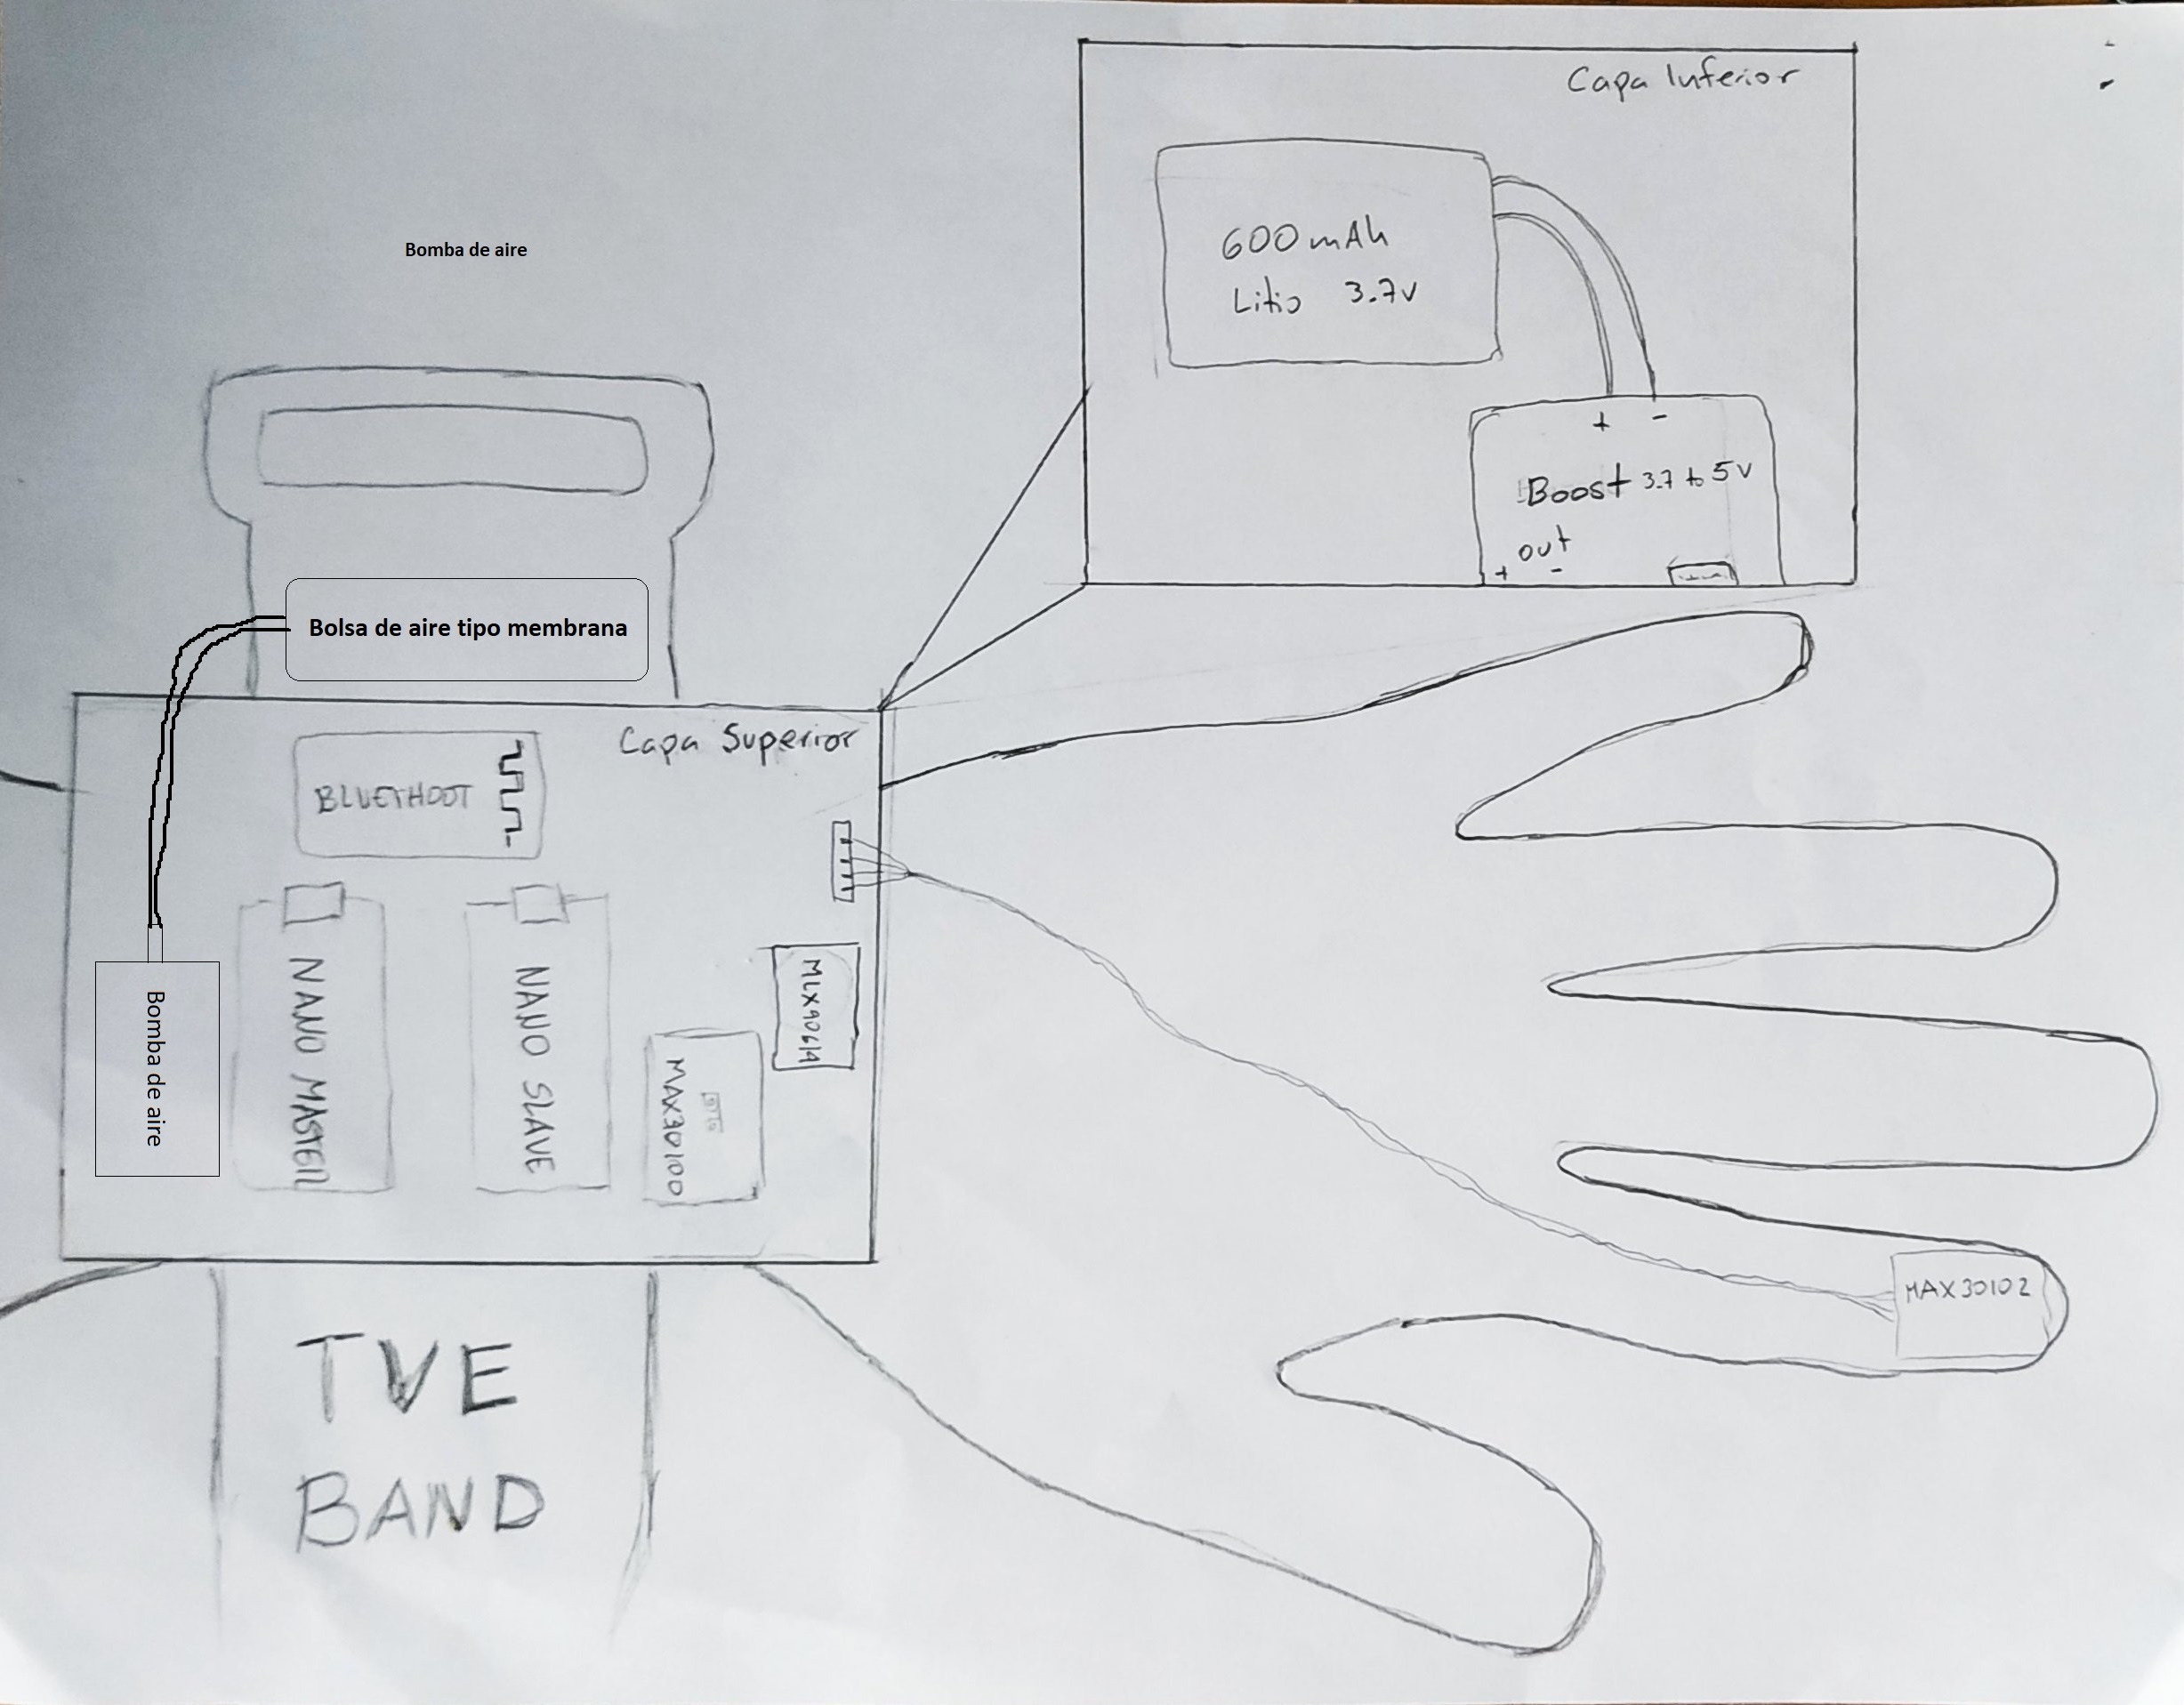 Capa Inferior
600 mAh
Litio 3.7v
+ -
Boost 3.7 to 5v
out
+ -
Bomba de aire
Bolsa de aire tipo membrana
Capa Superior
BLUETHOOT
Bomba de aire
NANO MASTER
NANO SLAVE
MAX30100
MLX90614
MAX30102
TVE
BAND